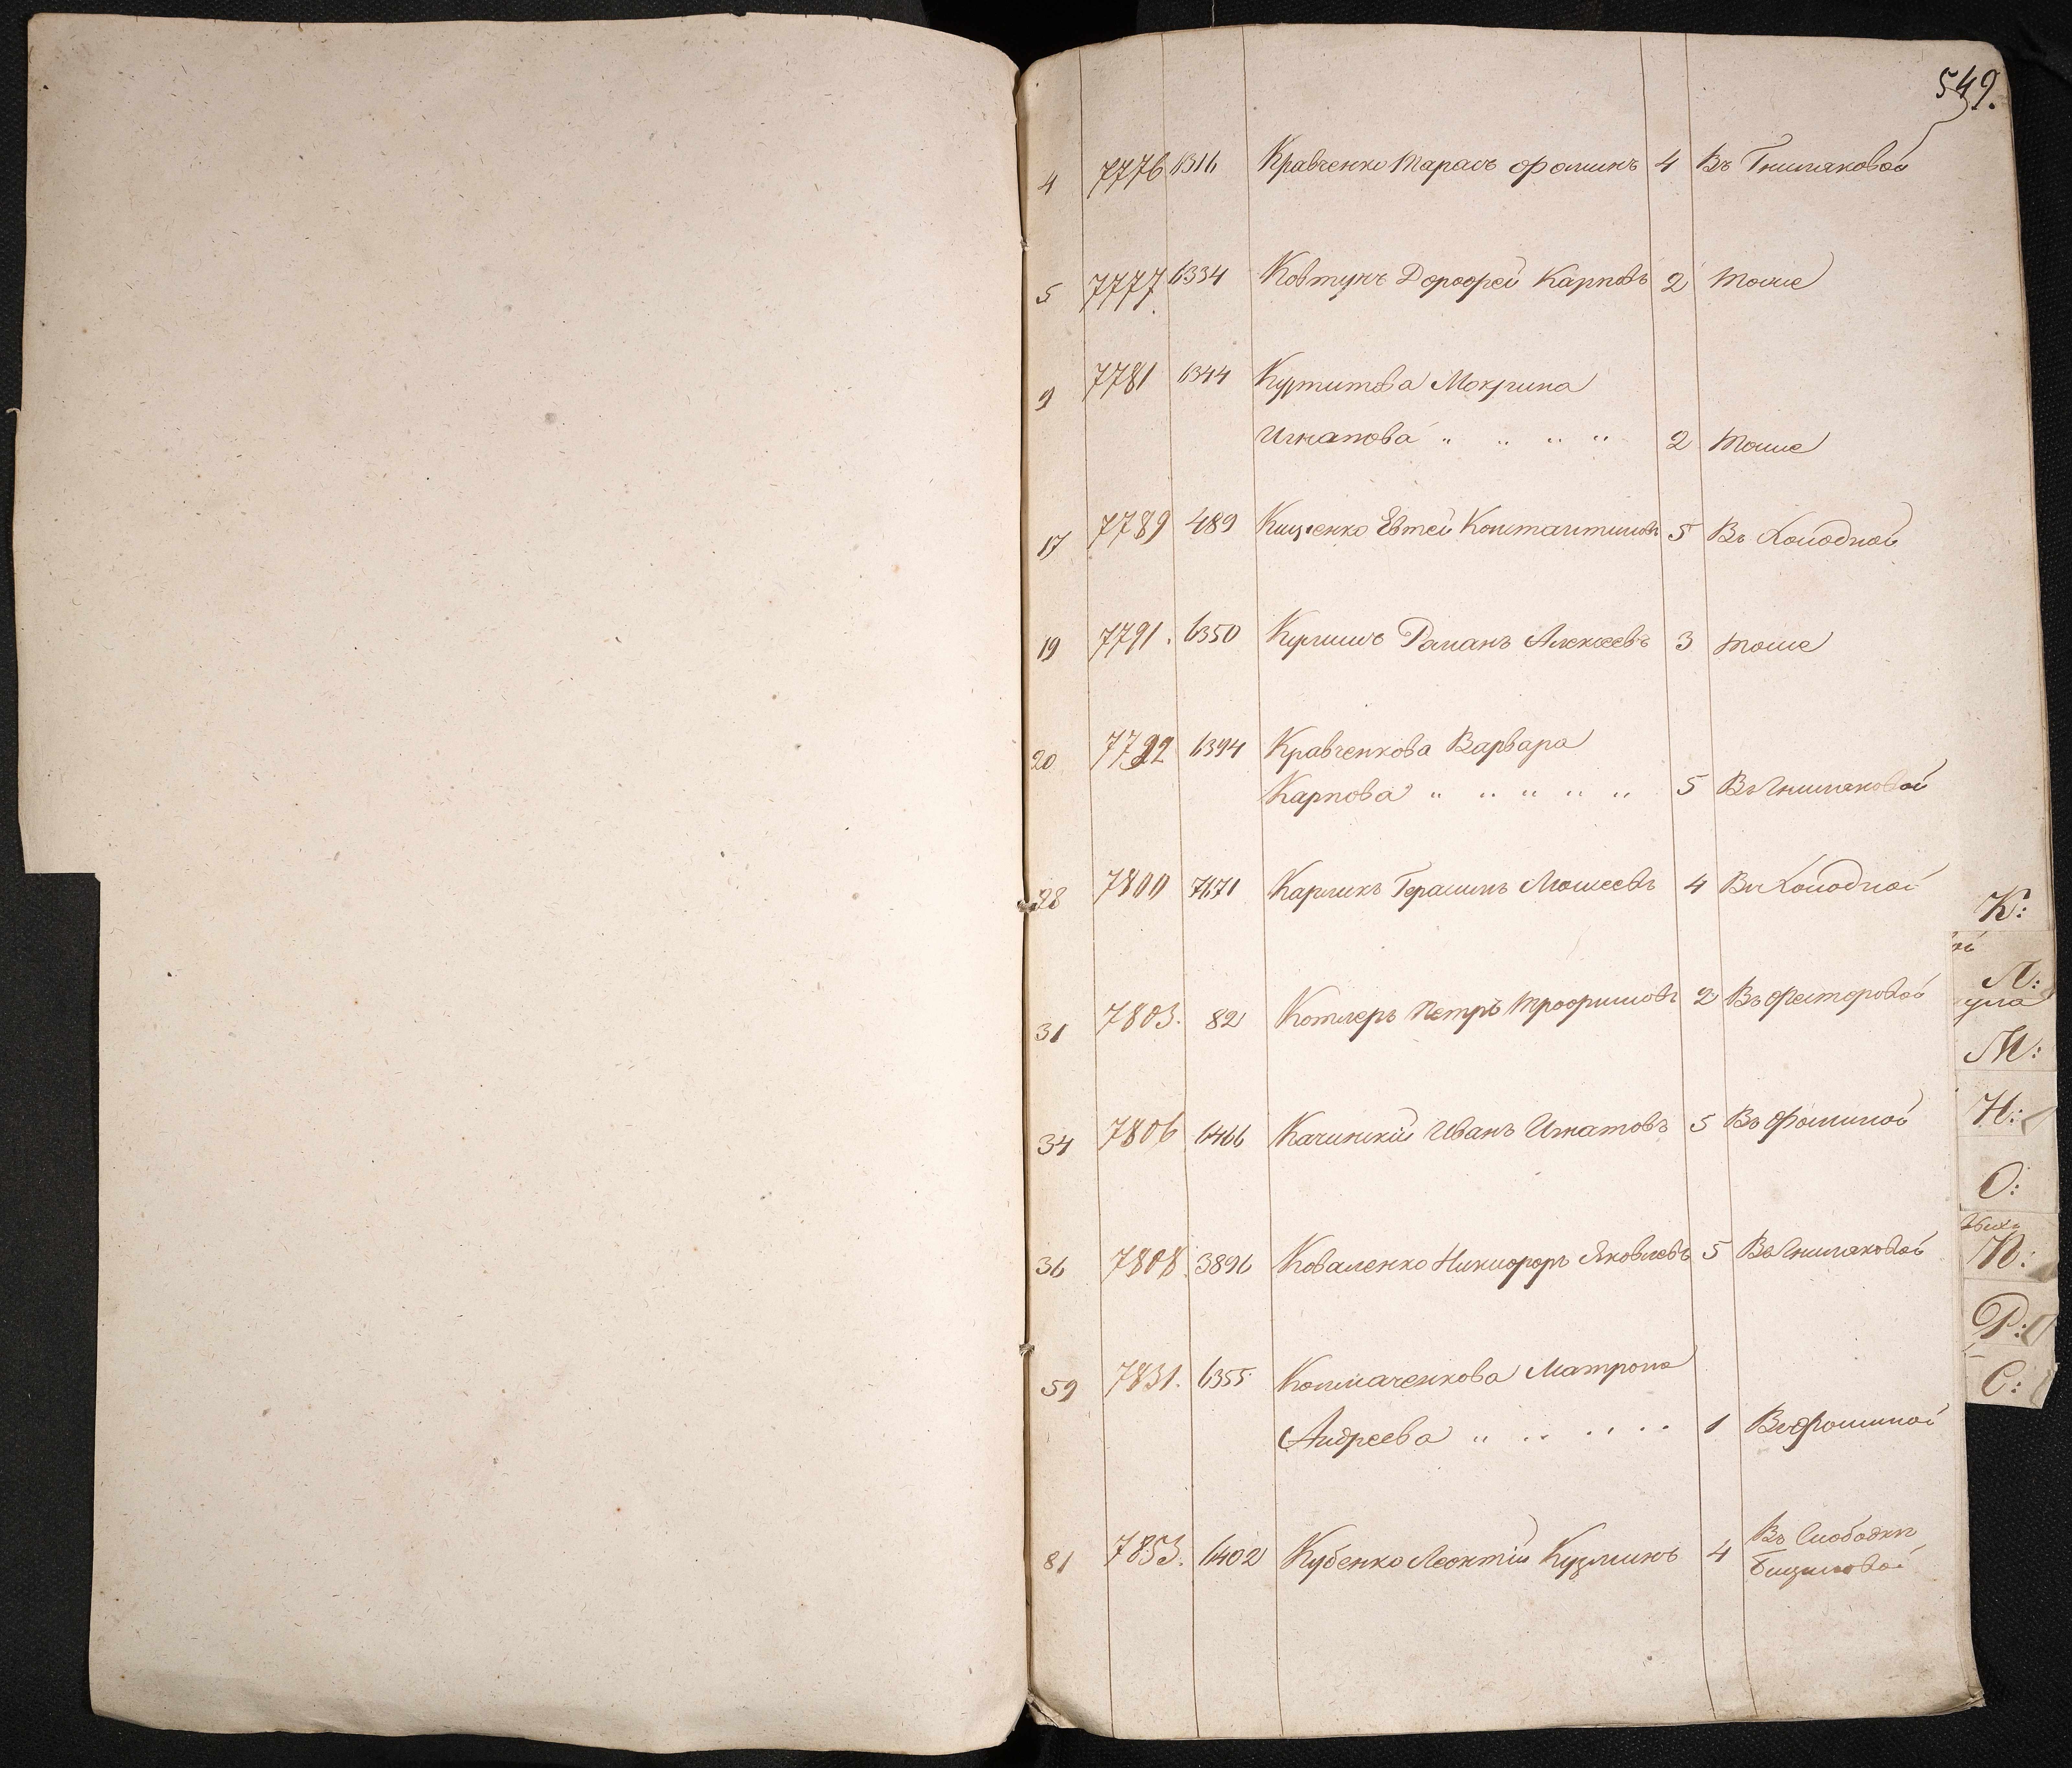 549.
4 7776 6316 Кравченко Тарасъ Фоминъ 4 Въ Гнилаковой
5 7777. 6334 Ковтунъ Дорофей Карповъ 2 тоже
9 7781 6344 Мокрина
Игнатова " " " " 2 тоже
17 7789 489 Кищенко Евтей Константиновъ 5 Въ Холодной
19 7791. 6350 Романъ Алексеевъ 3 тоже
20 7792 6394 Кравченкова Варвара
Карпова " " " " " 5 Въ Гнилаковой
28 7800 7671 Карликъ Герасимъ Моисеевъ 4 Въ Холодной
31 7803. 82 Котляръ Петръ Трофимовъ 2 Въ Фесторовой
34 7806 6466 Качинскій Иванъ Игнатовъ 5 Въ Фоминой
36 7808. 3896 Коваленко Никифоръ Яковлевъ 5 Въ Гнилаковой
59 7831. 6355 Колмаченкова Матрона
Андреева " " " " 1 Въ Фоминой
81 7853. 6402 Кубенко Леонтій Кузминъ 4 Въ Слободки
К:
Л:
М:
Н:
О:
П:
Р:
С: